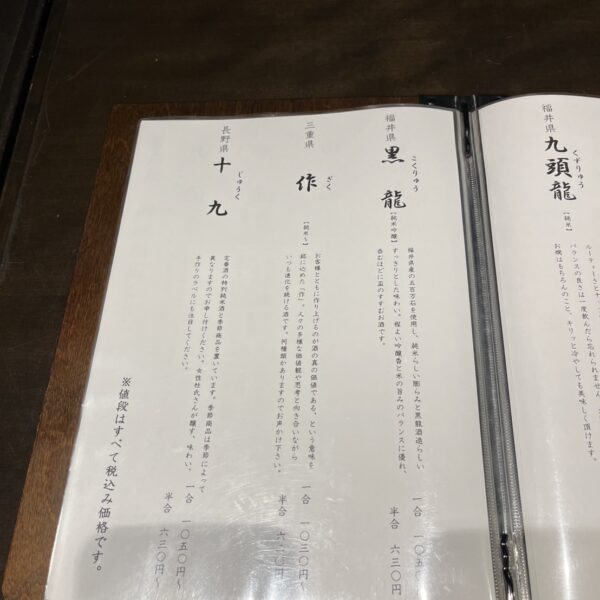 福井県
九頭龍
くずりゅう
【純米】
バランスの良さは一度飲んだら忘れられません。
お燗はもちろんのこと、キリッと冷やしても美味しく頂けます。
福井県
黒龍
こくりゅう
【純米吟醸】
福井県産の五百万石を使用し、純米らしい膨らみと黒龍酒造らしい
すっきりとした味わい。程よい吟醸香と米の旨みのバランスに優れ、
呑むほどに盃のすすむお酒です。
一合 一〇五〇
半合 六三〇円
三重県
作
ざく
【純米~】
お客様とともに作り上げるのが酒の真の価値である、という意味を
銘に込めた「作」。人々の多様な価値観や思考と向き合いながら
いつも進化を続ける酒です。何種類かありますのでお声かけ下さい。
一合 一〇三〇円~
半合 六二〇円~
長野県
十九
じゅうく
定番酒の特別純米酒と季節商品を置いています。季節商品は季節によって
異なりますのでお申し付けください。女性杜氏さんが醸す、味わい、
手作りのラベルにも注目してください。
一合 一〇五〇円~
半合 六三〇円~
※値段はすべて税込み価格です。